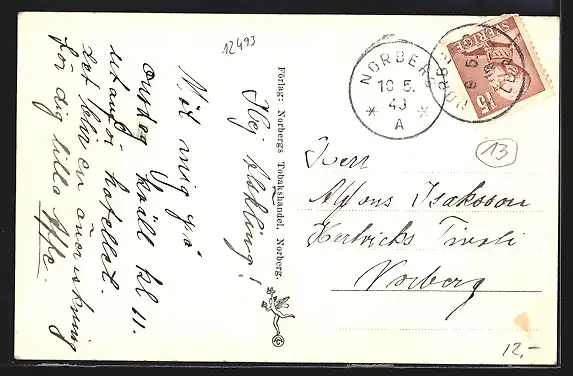 12493
Hej älskling!
Möt mig på
onsdag kväll kl 11.
utanför hotellet.
det blir en överraskning
för dig lilla Affe.
Förlag: Norbergs Tobakshandel, Norberg.
©
NORBERG
10 5.
43
A
NORBERG
SVERIGE
15
13
Herr
Alfons Isaksson
Hertvicks Tivoli
Norberg
12.-